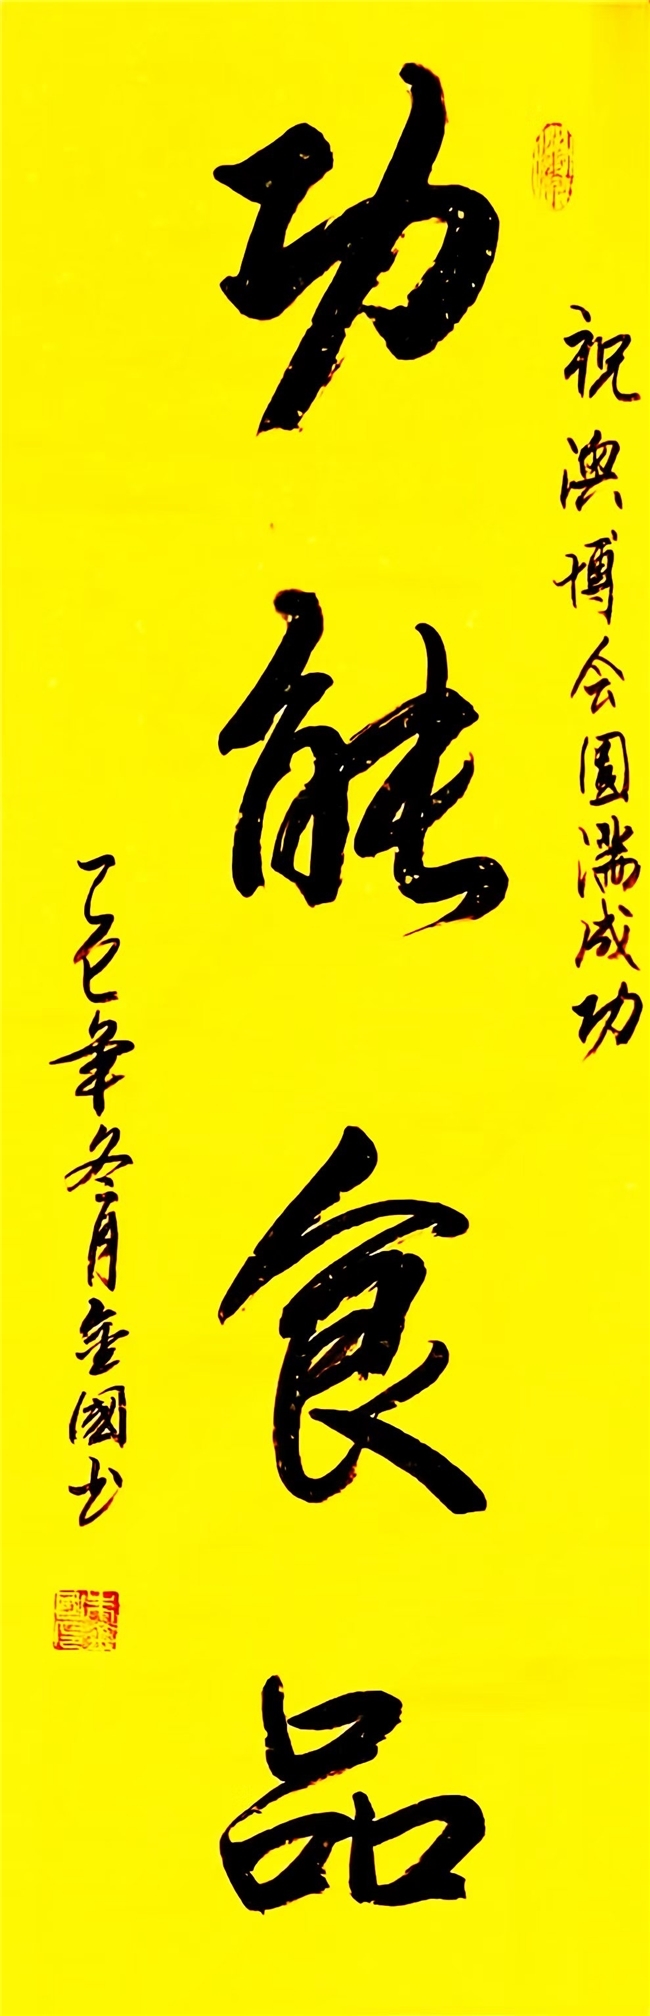 祝澳博会圆满成功
功能食品
乙巳年冬月金國书